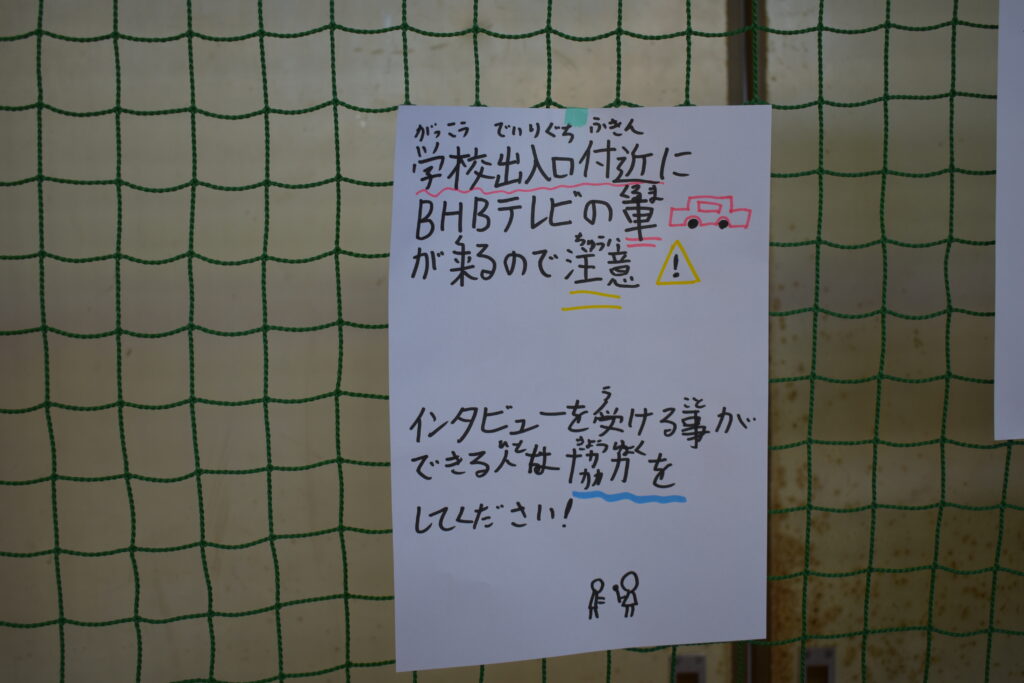 がっこう でいりぐち ふきん
学校出入口付近に
くるま
BHBテレビの車
く ちゅうい
が来るので注意 !
う こと
インタビューを受ける事が
ひと きょうりょく
できる人は協力を
してください!